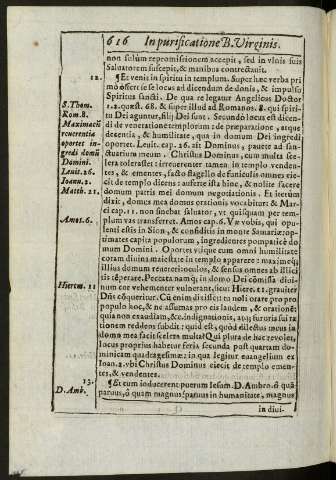 616 In purificatione B. Virginis.
non solùm repromissionem accepit, sed in vlnis suis
Saluatorem suscepit, & manibus contrectauit.
12. ¶ Et venit in spiritu in templum. Super hæc verba pri
mò offert se se locus ad dicendum de donis, & impulsu
Spiritus sancti. De qua re legatur Angelicus Doctor
S. Thom. 1.2. quæst. 68. & super illud ad Romanos 8. qui spiri-
Rom. 8. tu Dei aguntur, filij Dei sunt. Secundò locus est dicen-
Maximacũ di de veneratione templorum: de præparatione, atque
reuerentia decentia, & humilitate, qua in domum Dei ingredi
oportet in- oportet. Leuit. cap. 26. ait Dominus, pauete ad san-
gredi domũ ctuarium meum. Christus Dominus, cum multa sce-
Domini. lera tolerasset: irreuerenter tamen, in templo venden-
Leuit. 26. tes, & ementes, facto flagello de funiculis omnes eie-
Ioann. 2. cit de templo dicens: auferte ista hinc, & nolite facere
Matth. 21. domum patris mei domum negotiationis. Et iterum
dixit, domus mea domus orationis vocabitur: & Mar-
ci cap. 11. non sinebat saluator, vt quisquam per tem-
Amos. 6. plum vas transferret. Amos cap. 6. Væ vobis, qui opu-
lenti estis in Sion, & confiditis in monte Samariæ: op-
timates capita populorum, ingredientes pompaticè do
mum Domini. Oportet vtique cum omni humilitate
coram diuina maiestate in templo apparere: maximeq;
illius domum reuereri oculos, & sensus omnes ab illici
tis tẽperare. Peccata namq; in domo Dei cõmissa diui-
Hierem. 11 num cor vehementer vulnerant, sicut Hiere. 11. grauiter
Dñs cõqueritur. Cũ enim dixisset: tu noli orare pro pro
populo hoc, & ne assumas pro eis laudem, & orationẽ:
quia non exaudiam, &c. indignationis, atq; furoris sui ra
tionem reddens subdit: quid est, quòd dilectus meus in
domo mea facit scelera multa? Qui plura de hac re volet,
locus proprius habetur feria secunda post quartam do-
minicam quadragesimæ: in qua legitur euangelium ex
Ioan. 2. vbi Christus Dominus eiecit de templo emen-
tes, & vendentes.
13. ¶ Et cum inducerent puerum Iesum. D. Ambro. ô quã
D. Amb. paruus, ô quam magnus! paruus in humanitate, magnus
in diui-